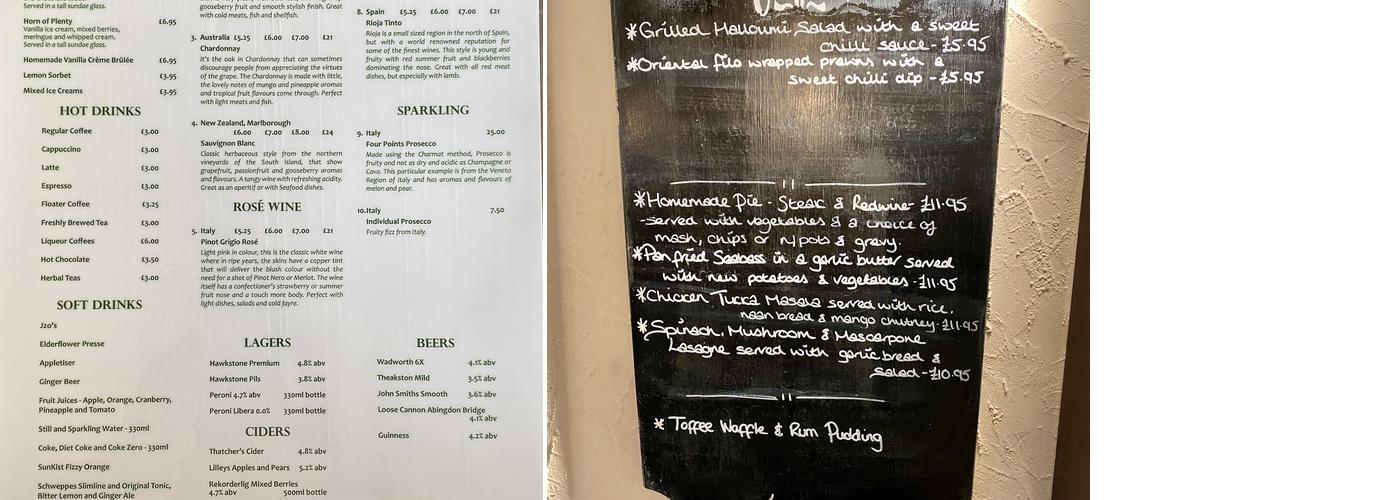 Served in a tall sundae glass.
Horn of Plenty £6.95
Vanilla ice cream, mixed berries,
meringue and whipped cream.
Served in a tall sundae glass.
Homemade Vanilla Crème Brûlée £6.95
Lemon Sorbet £3.95
Mixed Ice Creams £3.95
HOT DRINKS
Regular Coffee £3.00
Cappuccino £3.00
Latte £3.00
Espresso £3.00
Floater Coffee £3.25
Freshly Brewed Tea £3.00
Liqueur Coffees £6.00
Hot Chocolate £3.50
Herbal Teas £3.00
SOFT DRINKS
J2o's
Elderflower Presse
Appletiser
Ginger Beer
Fruit Juices - Apple, Orange, Cranberry,
Pineapple and Tomato
Still and Sparkling Water - 330ml
Coke, Diet Coke and Coke Zero - 330ml
SunKist Fizzy Orange
Schweppes Slimline and Original Tonic,
Bitter Lemon and Ginger Ale
gooseberry fruit and smooth stylish finish. Great
with cold meats, fish and shellfish.
3. Australia £5.25 £6.00 £7.00 £21
Chardonnay
It's the oak in Chardonnay that can sometimes
discourage people from appreciating the virtues
of the grape. The Chardonnay is made with little,
the lovely notes of mango and pineapple aromas
and tropical fruit flavours come through. Perfect
with light meats and fish.
4. New Zealand, Marlborough
£6.00 £7.00 £8.00 £24
Sauvignon Blanc
Classic herbaceous style from the northern
vineyards of the South Island, that show
grapefruit, passionfruit and gooseberry aromas
and flavours. A tangy wine with refreshing acidity.
Great as an aperitif or with Seafood dishes.
ROSÉ WINE
5. Italy £5.25 £6.00 £7.00 £21
Pinot Grigio Rosé
Light pink in colour, this is the classic white wine
where in ripe years, the skins have a copper tint
that will deliver the blush colour without the
need for a shot of Pinot Nero or Merlot. The wine
itself has a confectioner's strawberry or summer
fruit nose and a touch more body. Perfect with
light dishes, salads and cold fayre.
LAGERS
Hawkstone Premium 4.8% abv
Hawkstone Pils 3.8% abv
Peroni 4.7% abv 330ml bottle
Peroni Libera 0.0% 330ml bottle
CIDERS
Thatcher's Cider 4.8% abv
Lilleys Apples and Pears 5.2% abv
Rekorderlig Mixed Berries
4.7% abv 500ml bottle
8. Spain £5.25 £6.00 £7.00 £21
Rioja Tinto
Rioja is a small sized region in the north of Spain,
but with a world renowned reputation for
some of the finest wines. This style is young and
fruity with red summer fruit and blackberries
dominating the nose. Great with all red meat
dishes, but especially with lamb.
SPARKLING
9. Italy 25.00
Four Points Prosecco
Made using the Charmat method, Prosecco is
fruity and not as dry and acidic as Champagne or
Cava. This particular example is from the Veneto
Region of Italy and has aromas and flavours of
melon and pear.
10.Italy 7.50
Individual Prosecco
Fruity fizz from Italy.
BEERS
Wadworth 6X 4.1% abv
Theakston Mild 3.5% abv
John Smiths Smooth 3.6% abv
Loose Cannon Abingdon Bridge
4.1% abv
Guinness 4.2% abv
*Grilled Halloumi Salad with a sweet
chilli sauce - £5.95
*Oriental filo wrapped prawns with a
sweet chilli dip - £5.95
*Homemade Pie - Steak & Redwine £11.95
-served with vegetables & a choice of
mash, chips or n/pots & gravy.
*Pan fried Seabass in a garlic butter served
with new potatoes & vegetables - £11.95
*Chicken Tucka Masala served with rice,
naan bread & mango chutney - £11.95
*Spinach, Mushroom & Mascarpone
Lasagne served with garlic bread &
Salad - £10.95
* Toffee Waffle & Rum Pudding